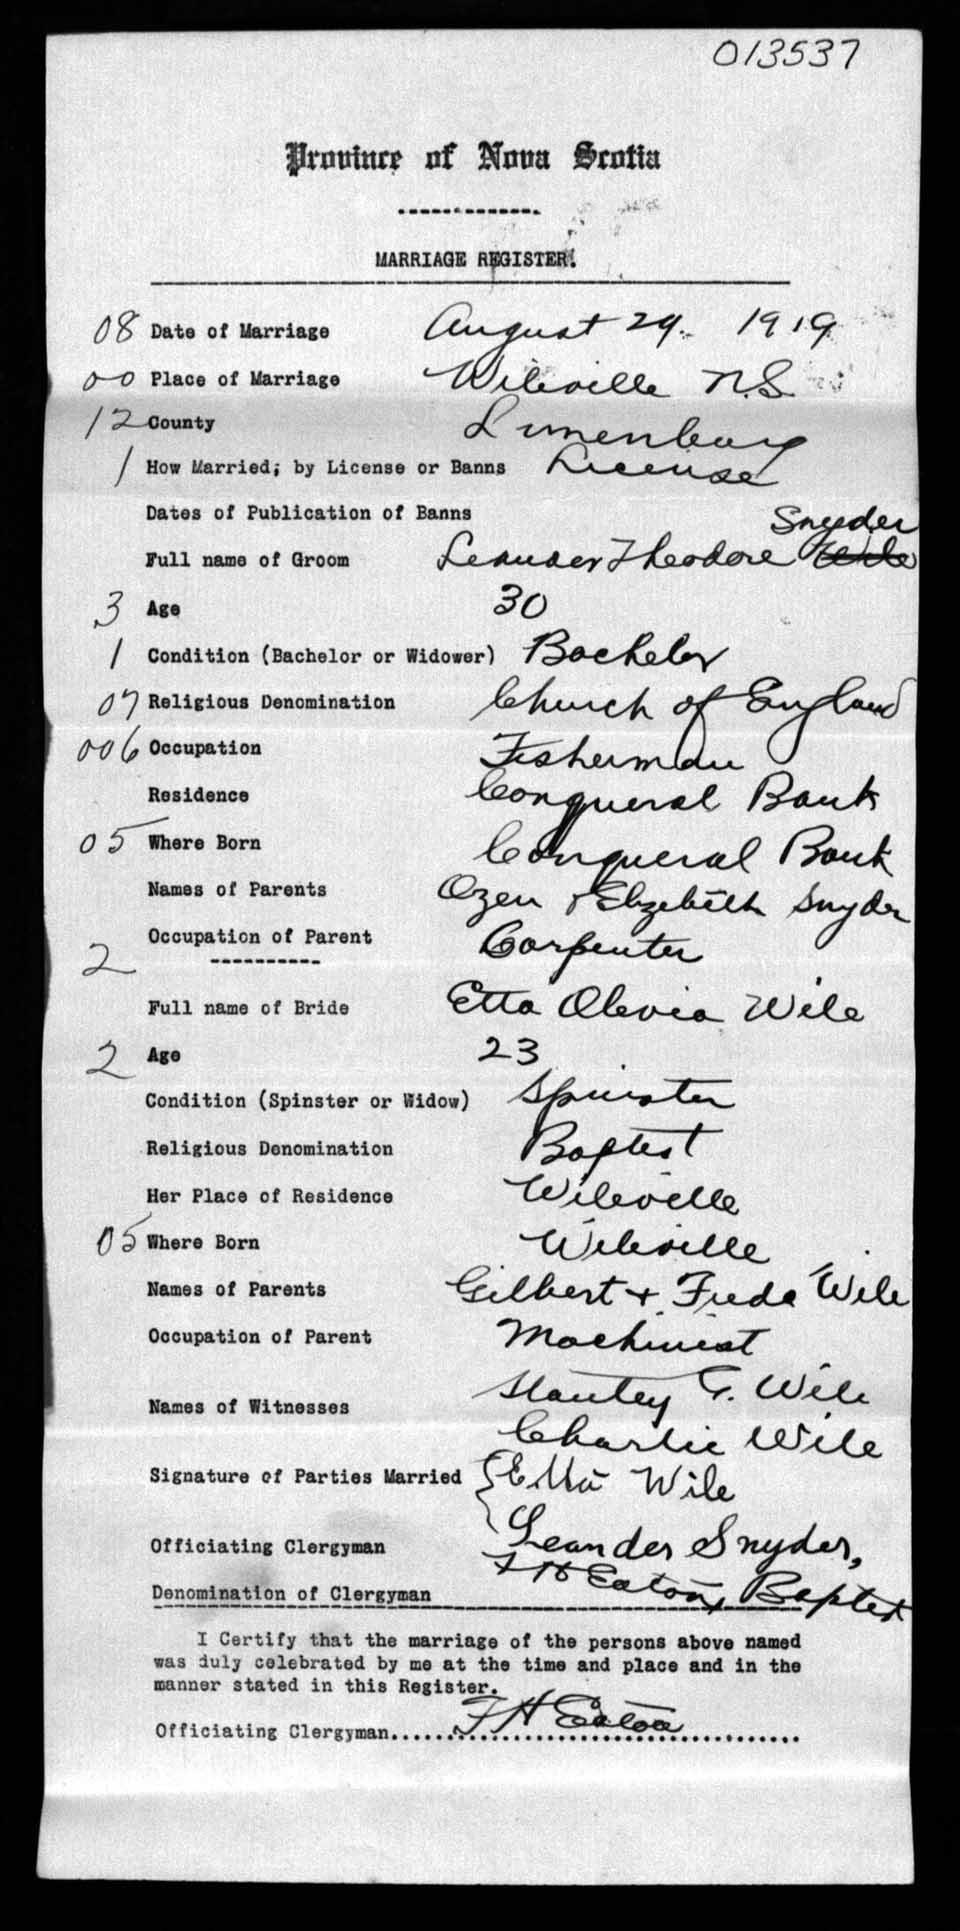 013537
Province of Nova Scotia
MARRIAGE REGISTER.
08 Date of Marriage August 29. 1919
00 Place of Marriage Wileville N.S.
12 County Lunenburg
1 How Married; by License or Banns License
Dates of Publication of Banns
Snyder
Full name of Groom Leander Theodore Wile
3 Age 30
1 Condition (Bachelor or Widower) Bachelor
07 Religious Denomination Church of England
006 Occupation Fisherman
Residence Conqueral Bank
05 Where Born Conqueral Bank
Names of Parents Ozen & Elizebeth Snyder
Occupation of Parent Carpenter
2
Full name of Bride Etta Olevia Wile
2 Age 23
Condition (Spinster or Widow) Spinster
Religious Denomination Baptist
Her Place of Residence Wileville
05 Where Born Wileville
Names of Parents Gilbert + Freda Wile
Occupation of Parent Machinist
Names of Witnesses Stanley G. Wile
Charlie Wile
Signature of Parties Married Etta Wile
Leander Snyder,
Officiating Clergyman F H Eaton, Baptist
Denomination of Clergyman
I Certify that the marriage of the persons above named
was duly celebrated by me at the time and place and in the
manner stated in this Register.
Officiating Clergyman...... F H Eaton